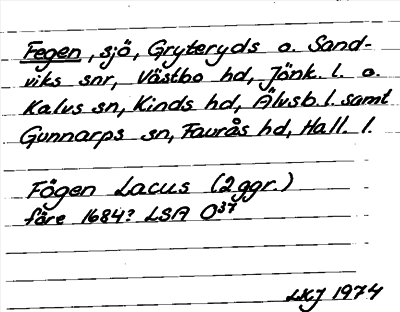 Fegen, sjö, Gryteryds o. Sand-
viks snr, Västbo hd, Jönk. l. o.
Kalvs sn, Kinds hd, Älvsb. l. samt
Gunnarps sn, Faurås hd, Hall. l.
Fägen Lacus (2 ggr.)
före 1684? LSA O37
LKJ 1974